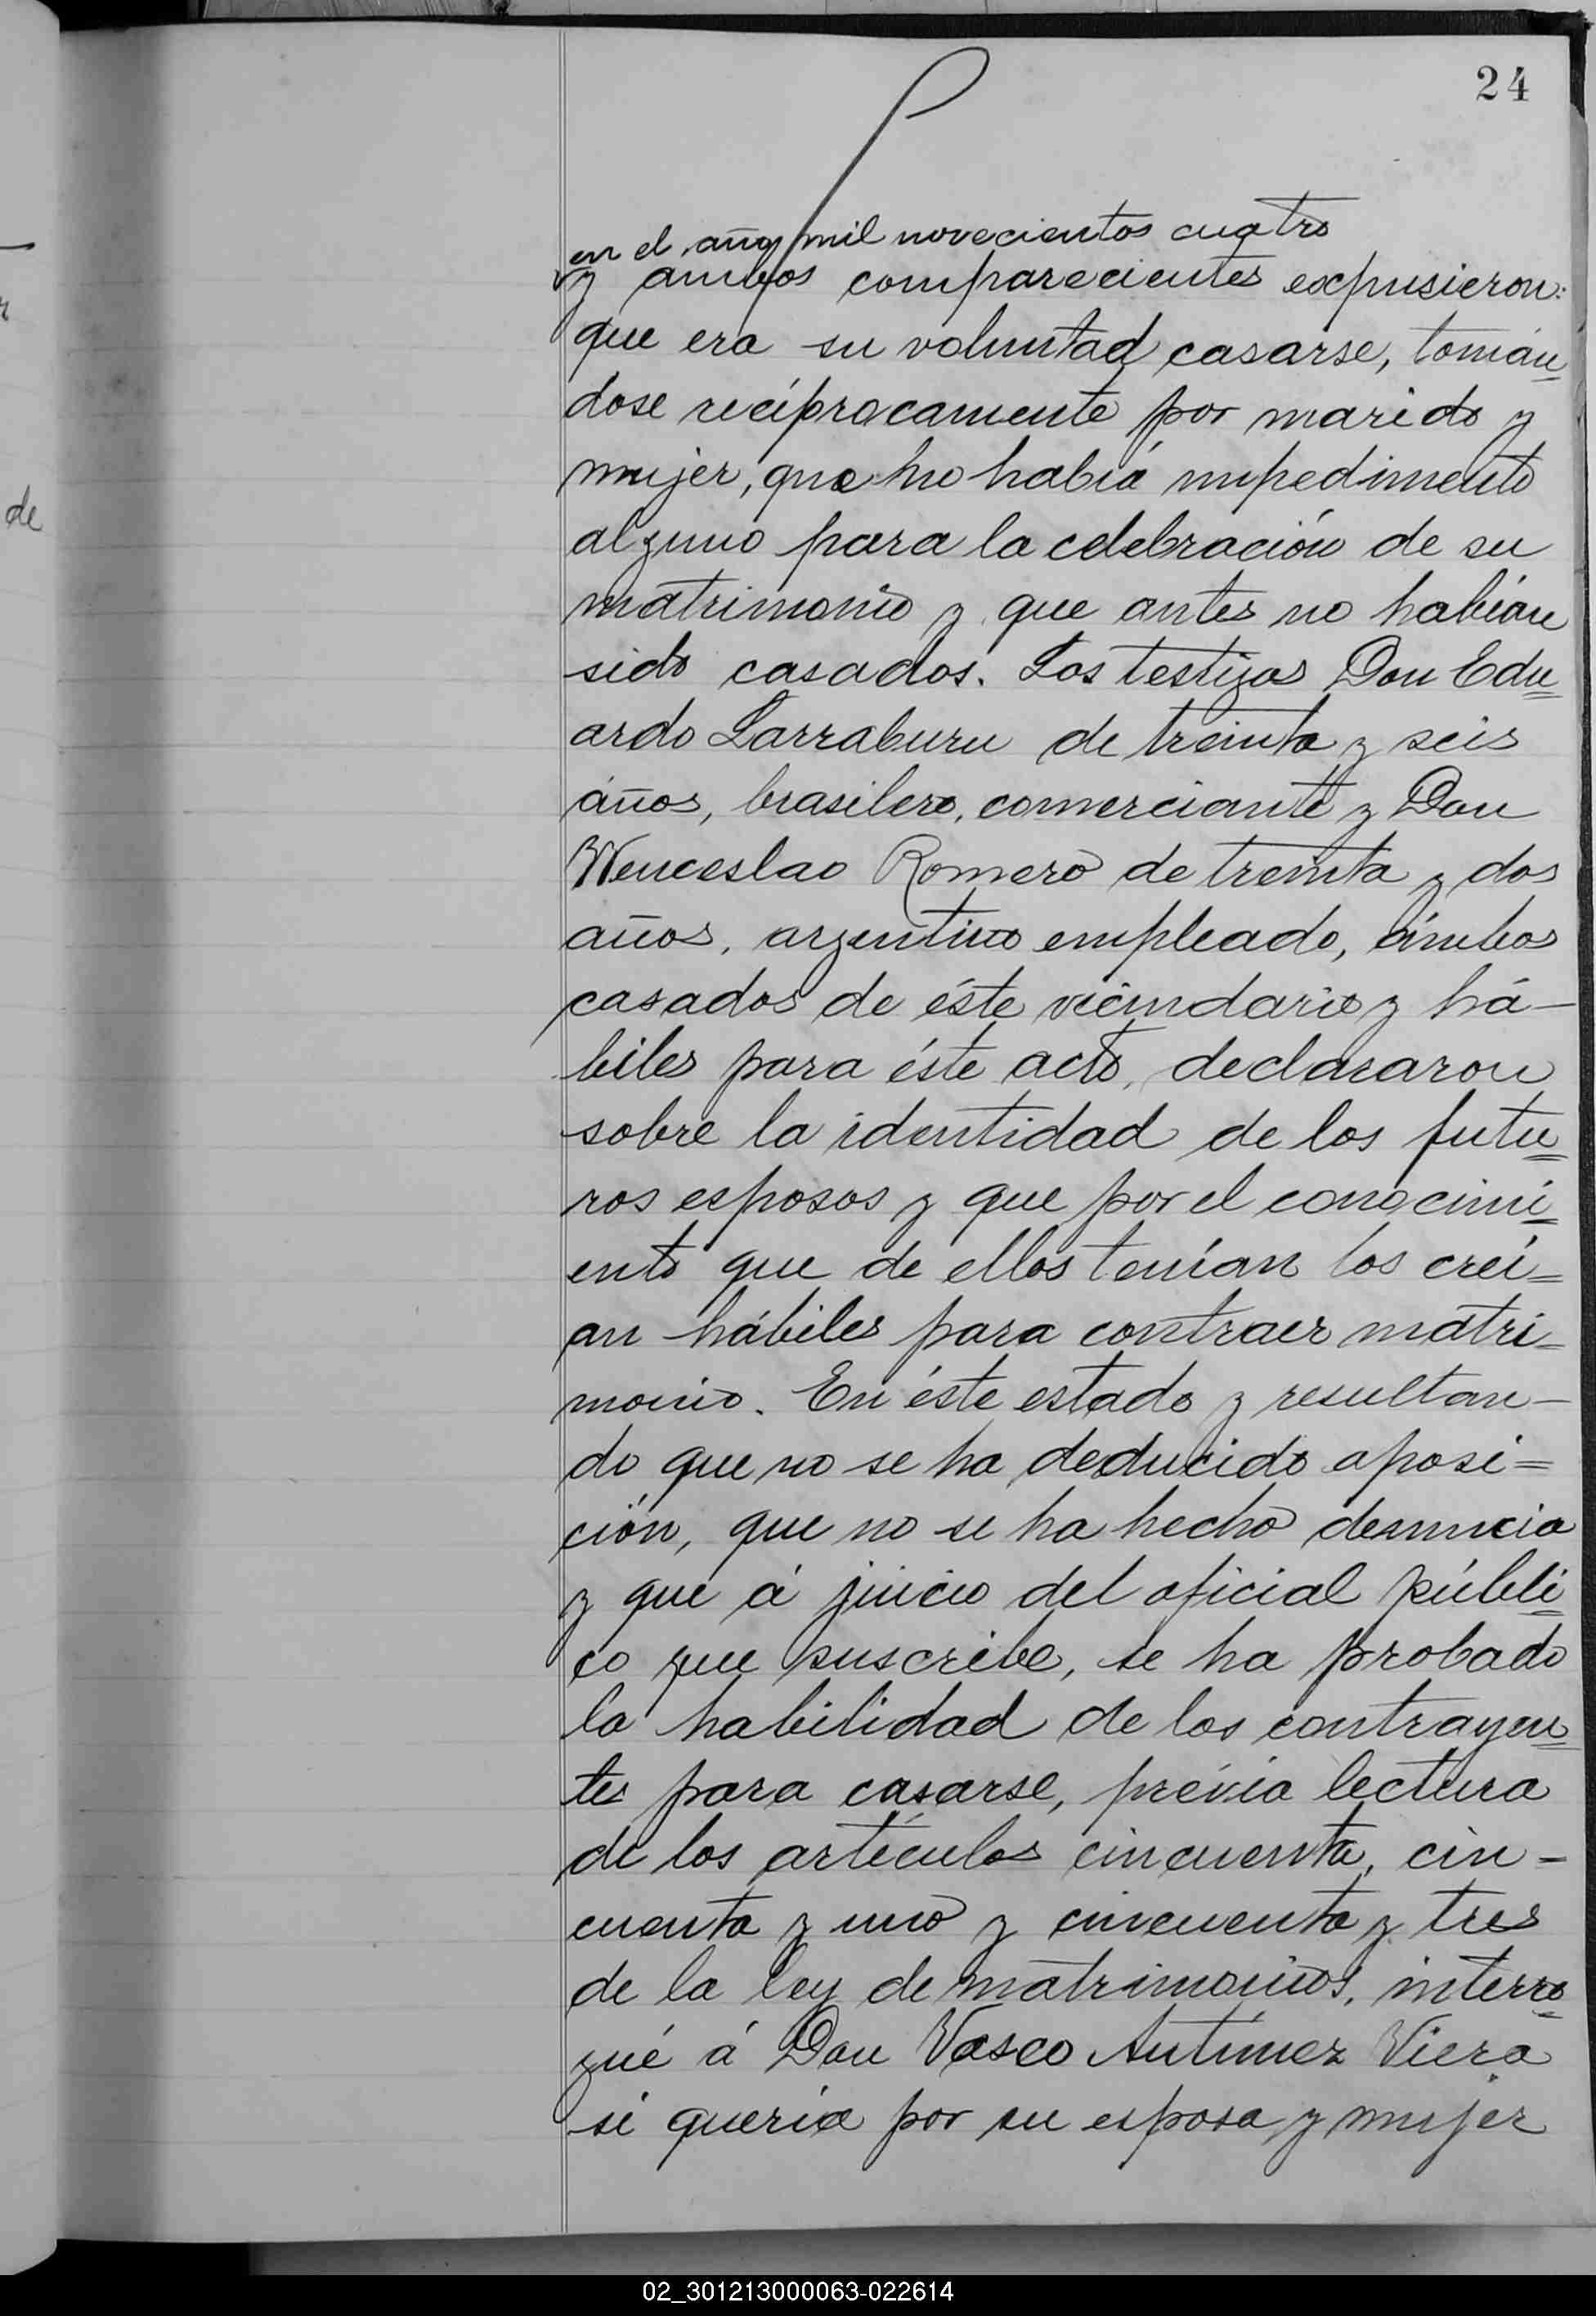 24
en el año mil novecientos cuatro
y ambos comparecientes expusieron:
que era su voluntad casarse, tomán=
dose recíprocamente por marido y
mujer, que no había impedimento
alguno para la celebración de su
matrimonio y que antes no habían
sido casados. Los testigos Don Edu=
ardo Larraburu de treinta y seis
años, brasilero, comerciante y Don
Wenceslao Romero de treinta y dos
años, argentino empleado, ámbos
casados de éste vecindario y há-
biles para éste acto, declararon
sobre la identidad de los futu=
ros esposos y que por el conocimi=
ento que de ellos tenían los creí=
an hábiles para contraer matri=
monio. En éste estado y resultan-
do que no se ha deducido oposi=
ción, que no se ha hecho denuncia
y que á juicio del oficial públi=
co que suscribe, se ha probado
la habilidad de los contrayen=
tes para casarse, prévia lectura
de los artículos cincuenta, cin-
cuenta y uno y cincuenta y tres
de la ley de matrimonios, interro=
gué á Don Vasco Antúnez Viera
si quería por su esposa y mujer
de
02_301213000063-022614